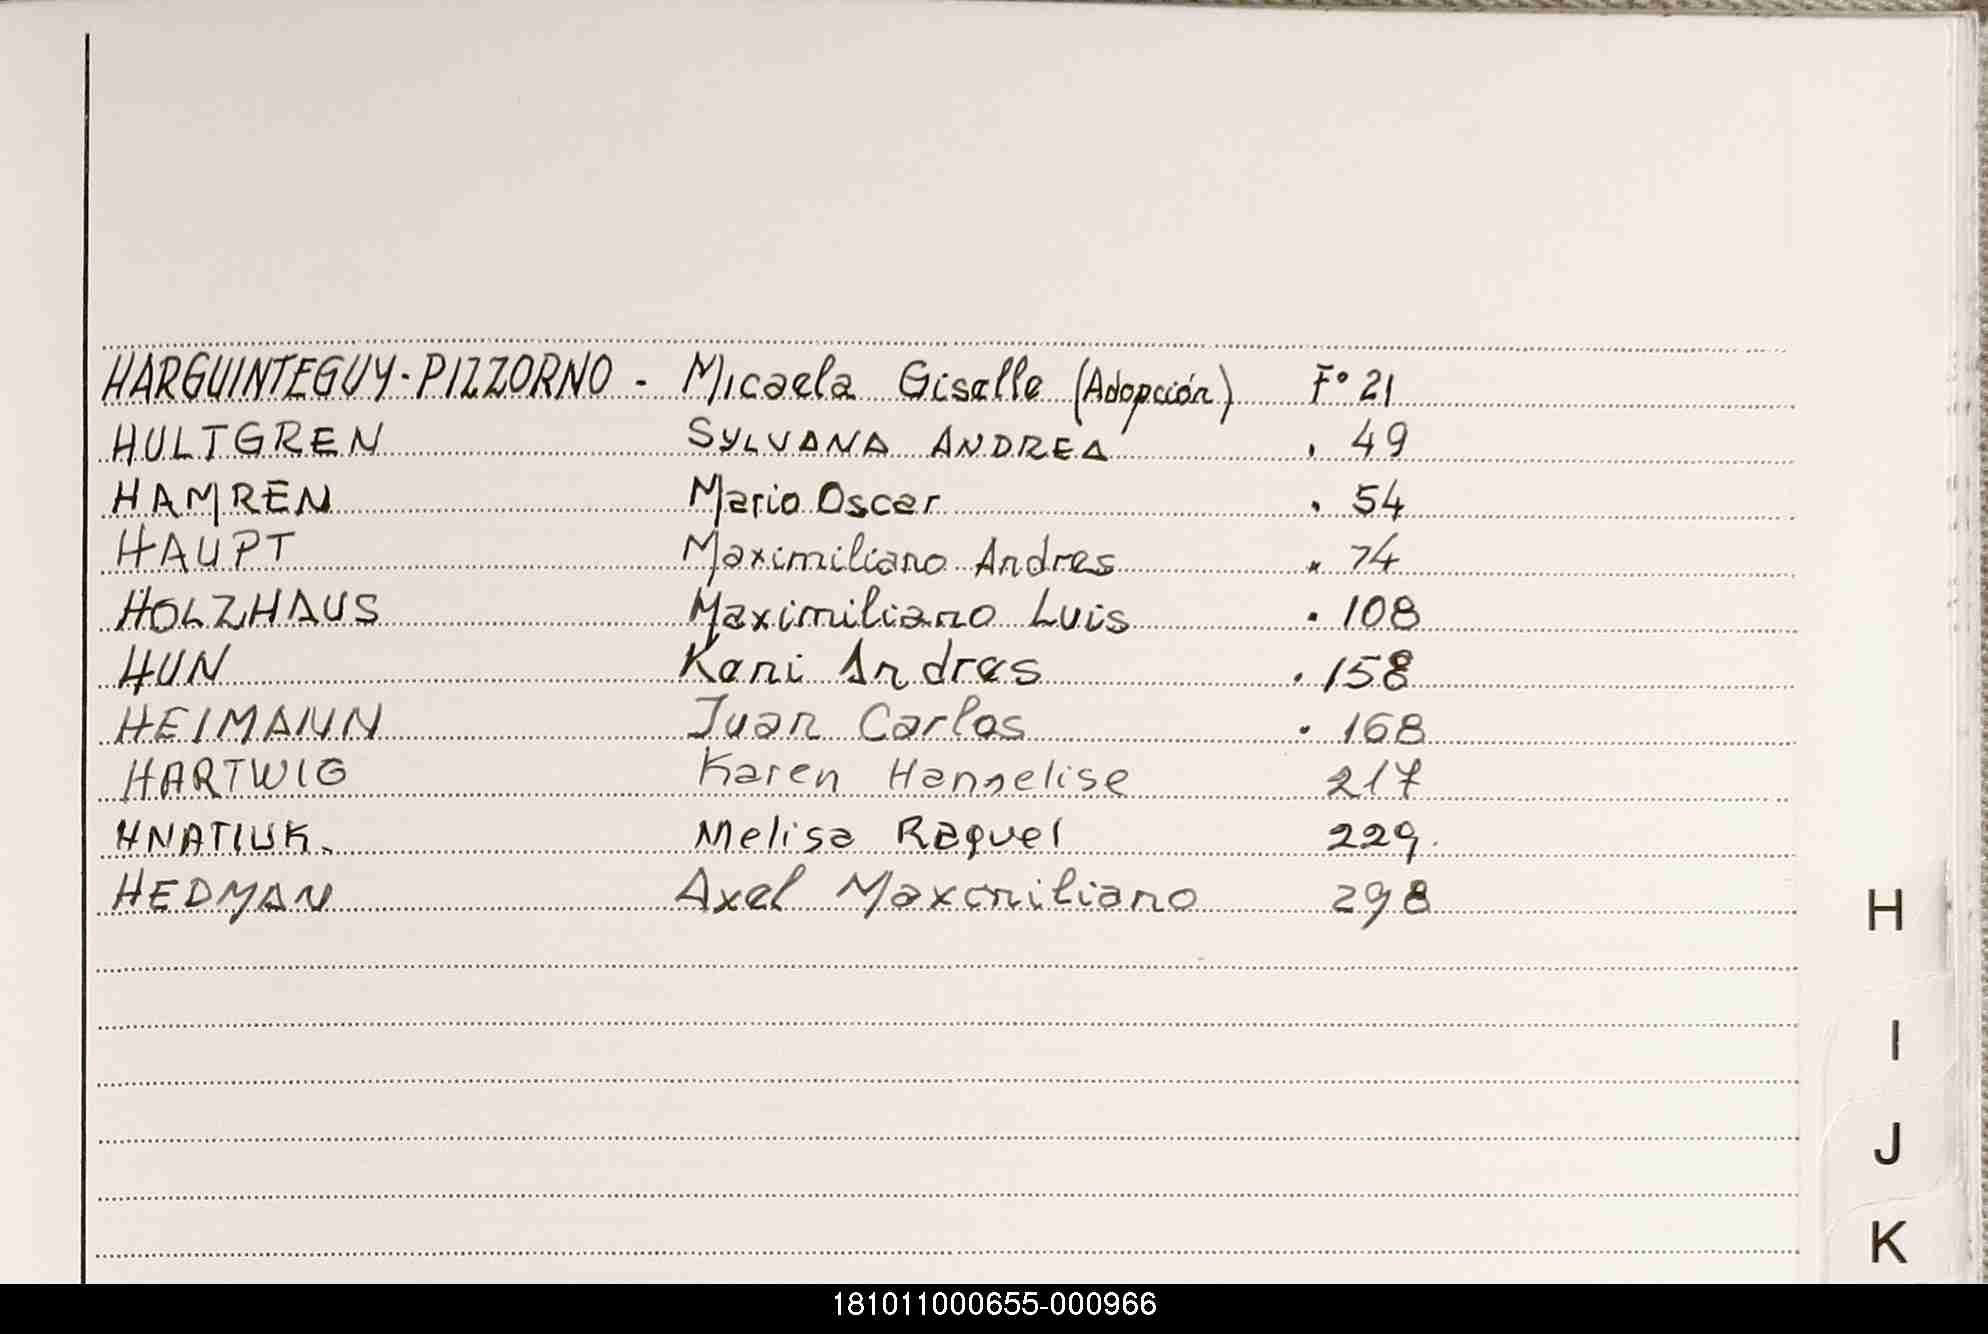 HARGUINTEGUY-PIZZORNO - Micaela Giselle (Adopción) Fº 21
HULTGREN SYLVANA ANDREA . 49
HAMREN Mario Oscar . 54
HAUPT Maximiliano Andres " 74
HOLZHAUS Maximiliano Luis . 108
HUN Keni Andres . 158
HEIMANN Juan Carlos . 168
HARTWIG Karen Hannelise 217
HNATIUK. Melisa Raquel 229.
HEDMAN Axel Maxcmiliano 298
H
I
J
K
181011000655-000966